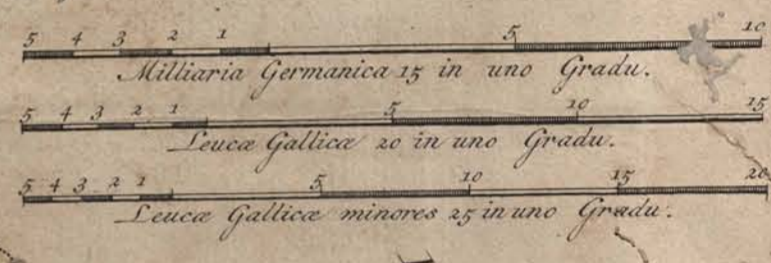 5 4 3 2 1 5 10
Milliaria Germanica 15 in uno Gradu.
5 4 3 2 1 5 10 15
Leucæ Gallicæ 20 in uno Gradu.
5 4 3 2 1 5 10 15 20
Leucæ Gallicæ minores 25 in uno Gradu.